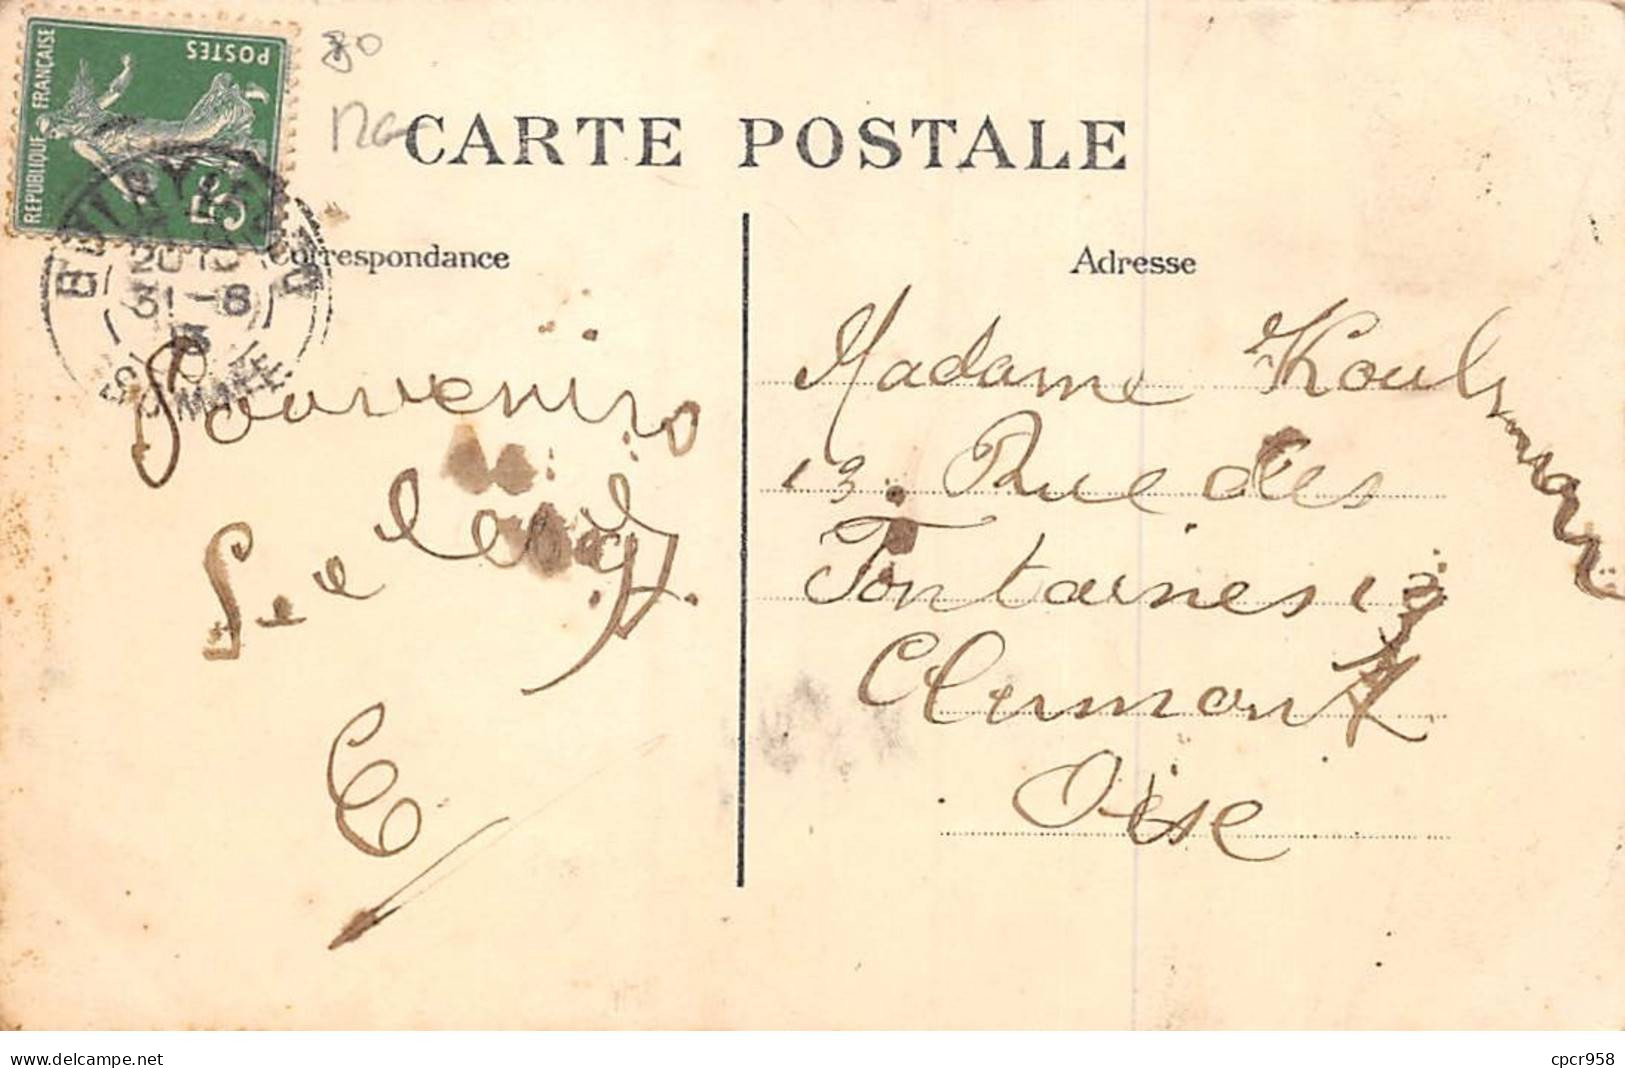 REPUBLIQUE FRANÇAISE
POSTES
5
80
CARTE POSTALE
Correspondance
Adresse
20 15
31 - 8
13
SOMME
Souvenirs
E
Madame
13. Rue des
Fontaines 13
Clermont
Oise
www.delcampe.net
cpcr958